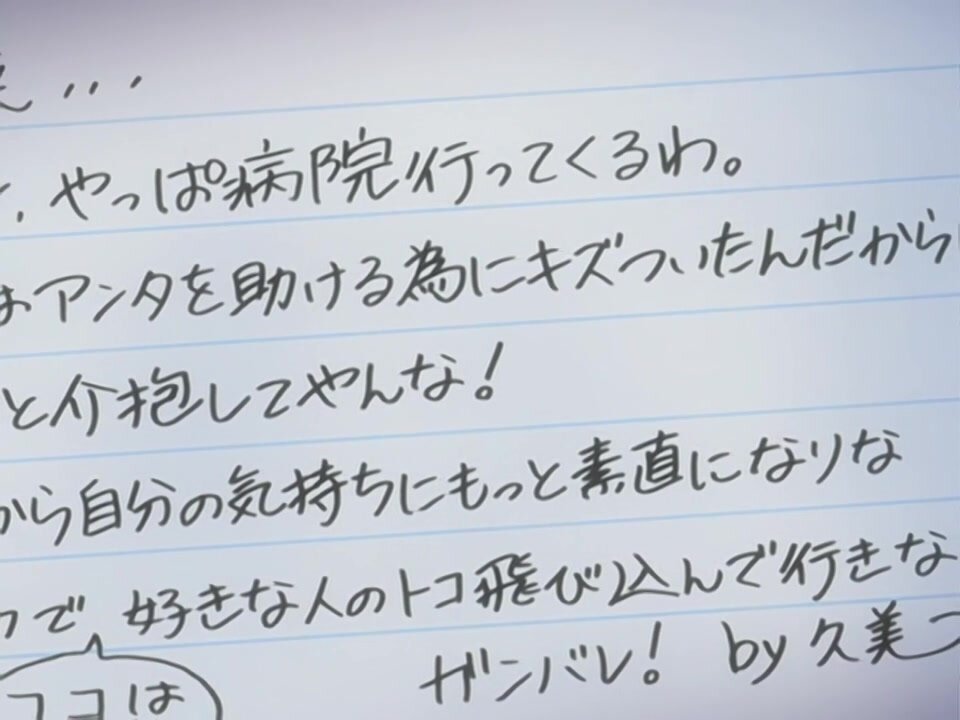 ...
、やっぱ病院行ってくるわ。
はアンタを助ける為にキズついたんだから
と介抱してやんな!
から自分の気持ちにもっと素直になりな
で 好きな人のトコ飛び込んで行きな
ガンバレ! by 久美
ココは